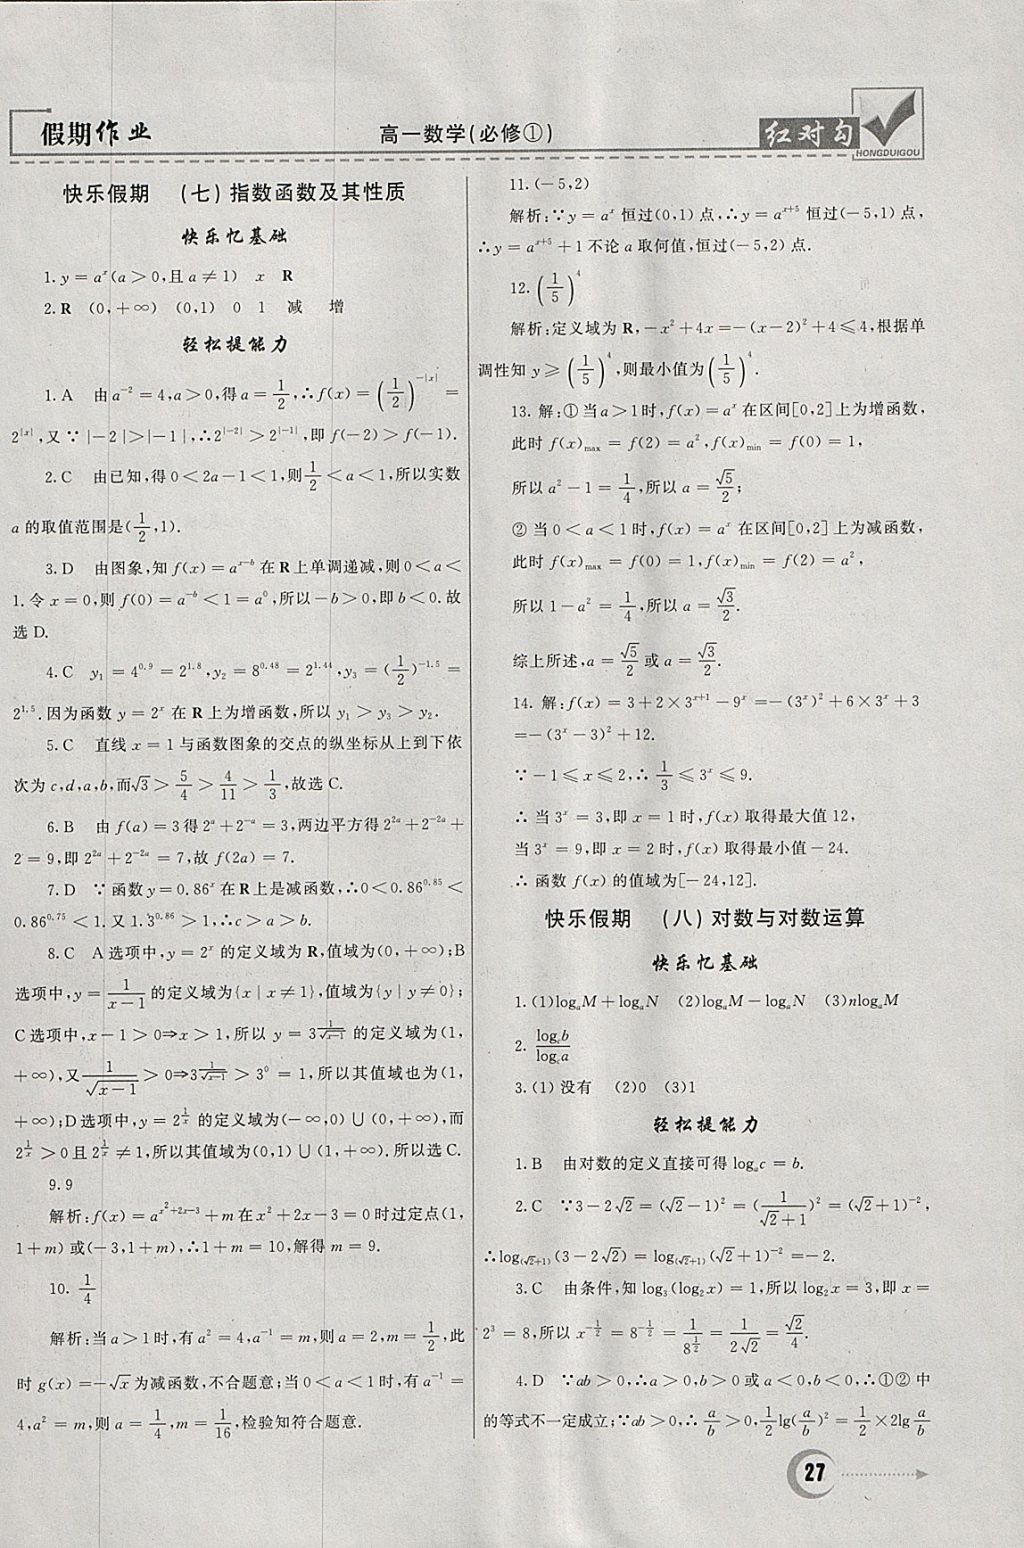 假期作业
高一数学(必修①)
红对勾
HONGDUIGOU
快乐假期 (七)指数函数及其性质
快乐忆基础
1.y=a^x(a>0,且a≠1) x R
2.R (0,+∞) (0,1) 0 1 减 增
轻松提能力
1.A 由a^{-2}=4,a>0,得a=1/2,∴f(x)=(1/2)^{-|x|}=
2^{|x|},又∵|-2|>|-1|,∴2^{|-2|}>2^{|-1|},即f(-2)>f(-1).
2.C 由已知,得0<2a-1<1,则1/2<a<1,所以实数
a的取值范围是(1/2,1).
3.D 由图象,知f(x)=a^{x-b}在R上单调递减,则0<a<
1.令x=0,则f(0)=a^{-b}<1=a^0,所以-b>0,即b<0.故
选D.
4.C y₁=4^{0.9}=2^{1.8},y₂=8^{0.48}=2^{1.44},y₃=(1/2)^{-1.5}=
2^{1.5}.因为函数y=2^x在R上为增函数,所以y₁>y₃>y₂.
5.C 直线x=1与函数图象的交点的纵坐标从上到下依
次为c,d,a,b,而√3>5/4>4/11>1/3,故选C.
6.B 由f(a)=3得2^a+2^{-a}=3,两边平方得2^{2a}+2^{-2a}+
2=9,即2^{2a}+2^{-2a}=7,故f(2a)=7.
7.D ∵函数y=0.86^x在R上是减函数,∴0<0.86^{0.85}<
0.86^{0.75}<1.又1.3^{0.86}>1,∴c>a>b.
8.C A选项中,y=2^x的定义域为R,值域为(0,+∞);B
选项中,y=1/(x-1)的定义域为{x|x≠1},值域为{y|y≠0};
C选项中,x-1>0⇒x>1,所以y=3^{1/√(x-1)}的定义域为(1,
+∞),又1/√(x-1)>0⇒3^{1/√(x-1)}>3^0=1,所以其值域也为(1,
+∞);D选项中,y=2^{1/x}的定义域为(-∞,0)∪(0,+∞),而
2^{1/x}>0且2^{1/x}≠1,所以其值域为(0,1)∪(1,+∞).所以选C.
9.9
解析:f(x)=a^{x²+2x-3}+m在x²+2x-3=0时过定点(1,
1+m)或(-3,1+m),∴1+m=10,解得m=9.
10.1/4
解析:当a>1时,有a²=4,a^{-1}=m,则a=2,m=1/2,此
时g(x)=-√x为减函数,不合题意;当0<a<1时,有a^{-1}=
4,a²=m,则a=1/4,m=1/16,检验知符合题意.
11.(-5,2)
解析:∵y=a^x恒过(0,1)点,∴y=a^{x+5}恒过(-5,1)点,
∴y=a^{x+5}+1不论a取何值,恒过(-5,2)点.
12.(1/5)^4
解析:定义域为R,-x²+4x=-(x-2)²+4≤4,根据单
调性知y≥(1/5)^4,则最小值为(1/5)^4.
13.解:①当a>1时,f(x)=a^x在区间[0,2]上为增函数,
此时f(x)_{max}=f(2)=a²,f(x)_{min}=f(0)=1,
所以a²-1=1/4,所以a=√5/2;
②当0<a<1时,f(x)=a^x在区间[0,2]上为减函数,
此时f(x)_{max}=f(0)=1,f(x)_{min}=f(2)=a²,
所以1-a²=1/4,所以a=√3/2.
综上所述,a=√5/2或a=√3/2.
14.解:f(x)=3+2×3^{x+1}-9^x=-(3^x)²+6×3^x+3
=-(3^x-3)²+12.
∵-1≤x≤2,∴1/3≤3^x≤9.
∴当3^x=3,即x=1时,f(x)取得最大值12,
当3^x=9,即x=2时,f(x)取得最小值-24.
∴函数f(x)的值域为[-24,12].
快乐假期 (八)对数与对数运算
快乐忆基础
1.(1)log_aM+log_aN (2)log_aM-log_aN (3)nlog_aM
2.log_cb/log_ca
3.(1)没有 (2)0 (3)1
轻松提能力
1.B 由对数的定义直接可得log_ac=b.
2.C ∵3-2√2=(√2-1)²=(1/(√2+1))²=(√2+1)^{-2},
∴log_{(√2+1)}(3-2√2)=log_{(√2+1)}(√2+1)^{-2}=-2.
3.C 由条件,知log₃(log₂x)=1,所以log₂x=3,即x=
2³=8,所以x^{-1/2}=8^{-1/2}=1/8^{1/2}=1/(2√2)=√2/4.
4.D ∵ab>0,∴a>0,b>0或a<0,b<0,∴①②中
的等式不一定成立;∵ab>0,∴a/b>0,1/2lg(a/b)²=1/2×2lg a/b
27